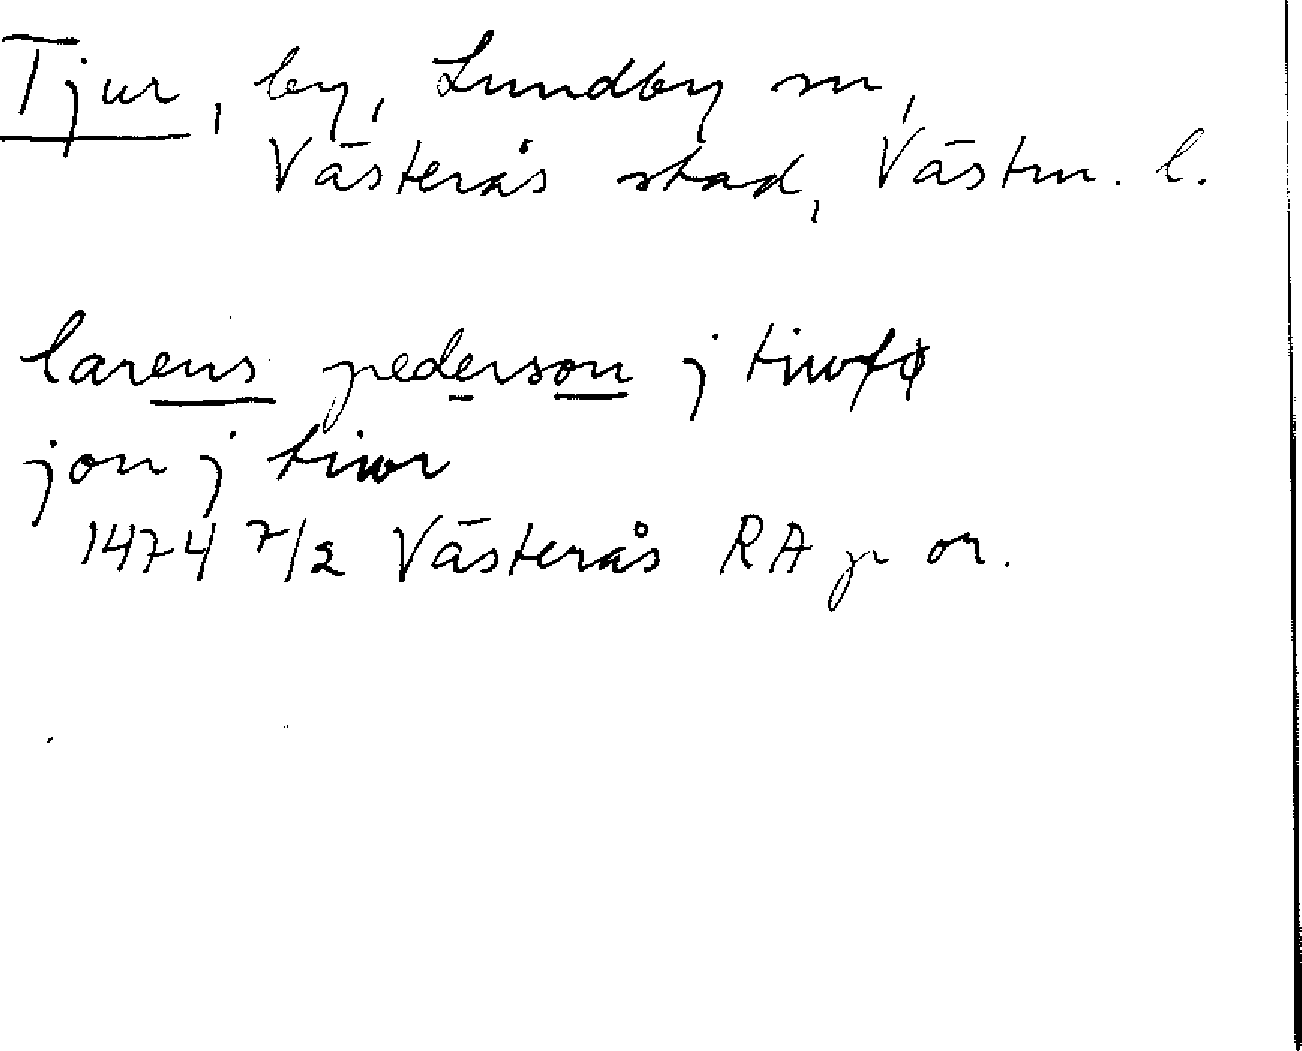 Tjur, by, Lundby sn,
Västerås stad, Västm. l.
larens pederson j
jon j tiwr
1474 7/2 Västerås RA p or.